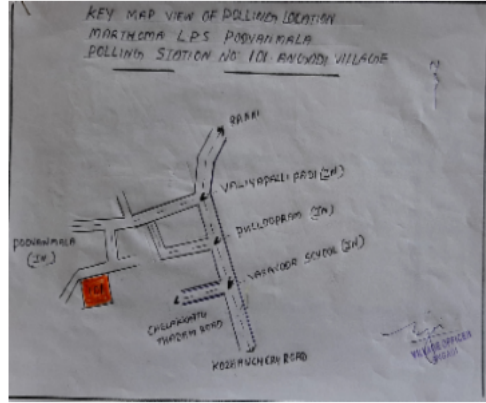 KEY MAP VIEW OF POLLING LOCATION
MARTHOMA L.P.S POOVANMALA
POLLING STATION NO 101. ANGADI VILLAGE
RANNI
VALIYAPALLI PADI (JN)
PULLOOPRAM (JN)
SCHOOL (JN)
POOVANMALA
(JN)
ROAD
KOZHANCHERY ROAD
VILLAGE OFFICER